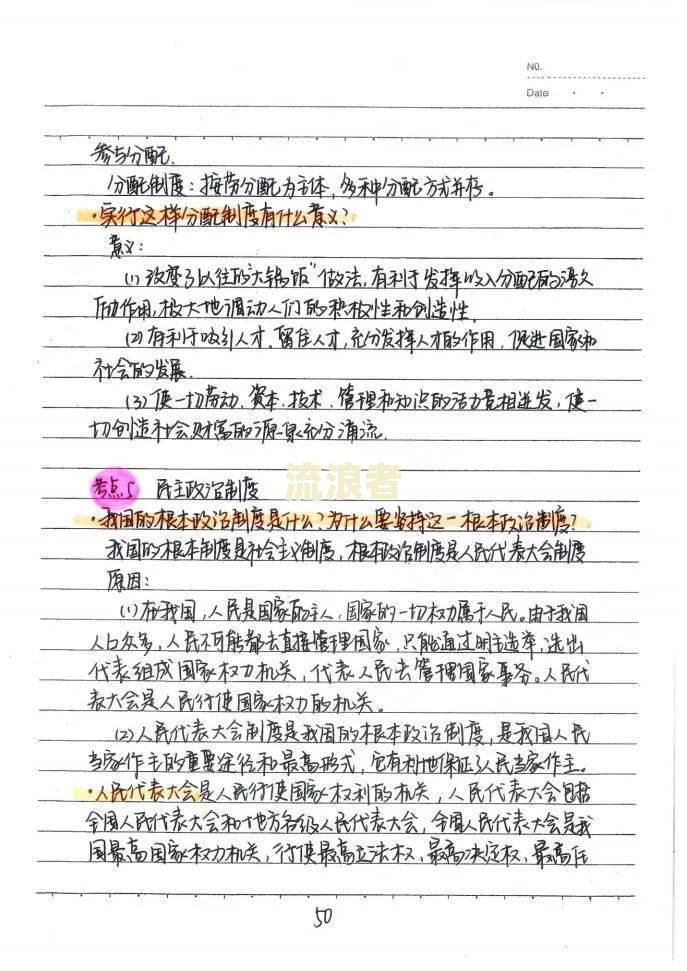 NO.
Date
参与分配.
分配制度：按劳分配为主体，多种分配方式并存。
·实行这样分配制度有什么意义？
意义：
(1) 改变了以往的“大锅饭”做法，有利于发挥收入分配的激
励作用，极大地调动人们的积极性和创造性.
(2) 有利于吸引人才、留住人才，充分发挥人才的作用，促进国家和
社会的发展.
(3) 使一切劳动、资本、技术、管理和知识的活力竞相迸发，使一
切创造社会财富的源泉充分涌流.
流浪者
考点5 民主政治制度
·我国的根本政治制度是什么？为什么要坚持这一根本政治制度？
我国的根本制度是社会主义制度，根本政治制度是人民代表大会制度
原因：
(1) 在我国，人民是国家的主人，国家的一切权力属于人民。由于我国
人口众多，人民不可能都去直接管理国家，只能通过民主选举，选出
代表组成国家权力机关，代表人民去管理国家事务。人民代
表大会是人民行使国家权力的机关。
(2) 人民代表大会制度是我国的根本政治制度，是我国人民
当家作主的重要途径和最高形式，它有利地保证了人民当家作主。
·人民代表大会是人民行使国家权利的机关，人民代表大会包括
全国人民代表大会和地方各级人民代表大会，全国人民代表大会是我
国最高国家权力机关，行使最高立法权、最高决定权、最高任
50